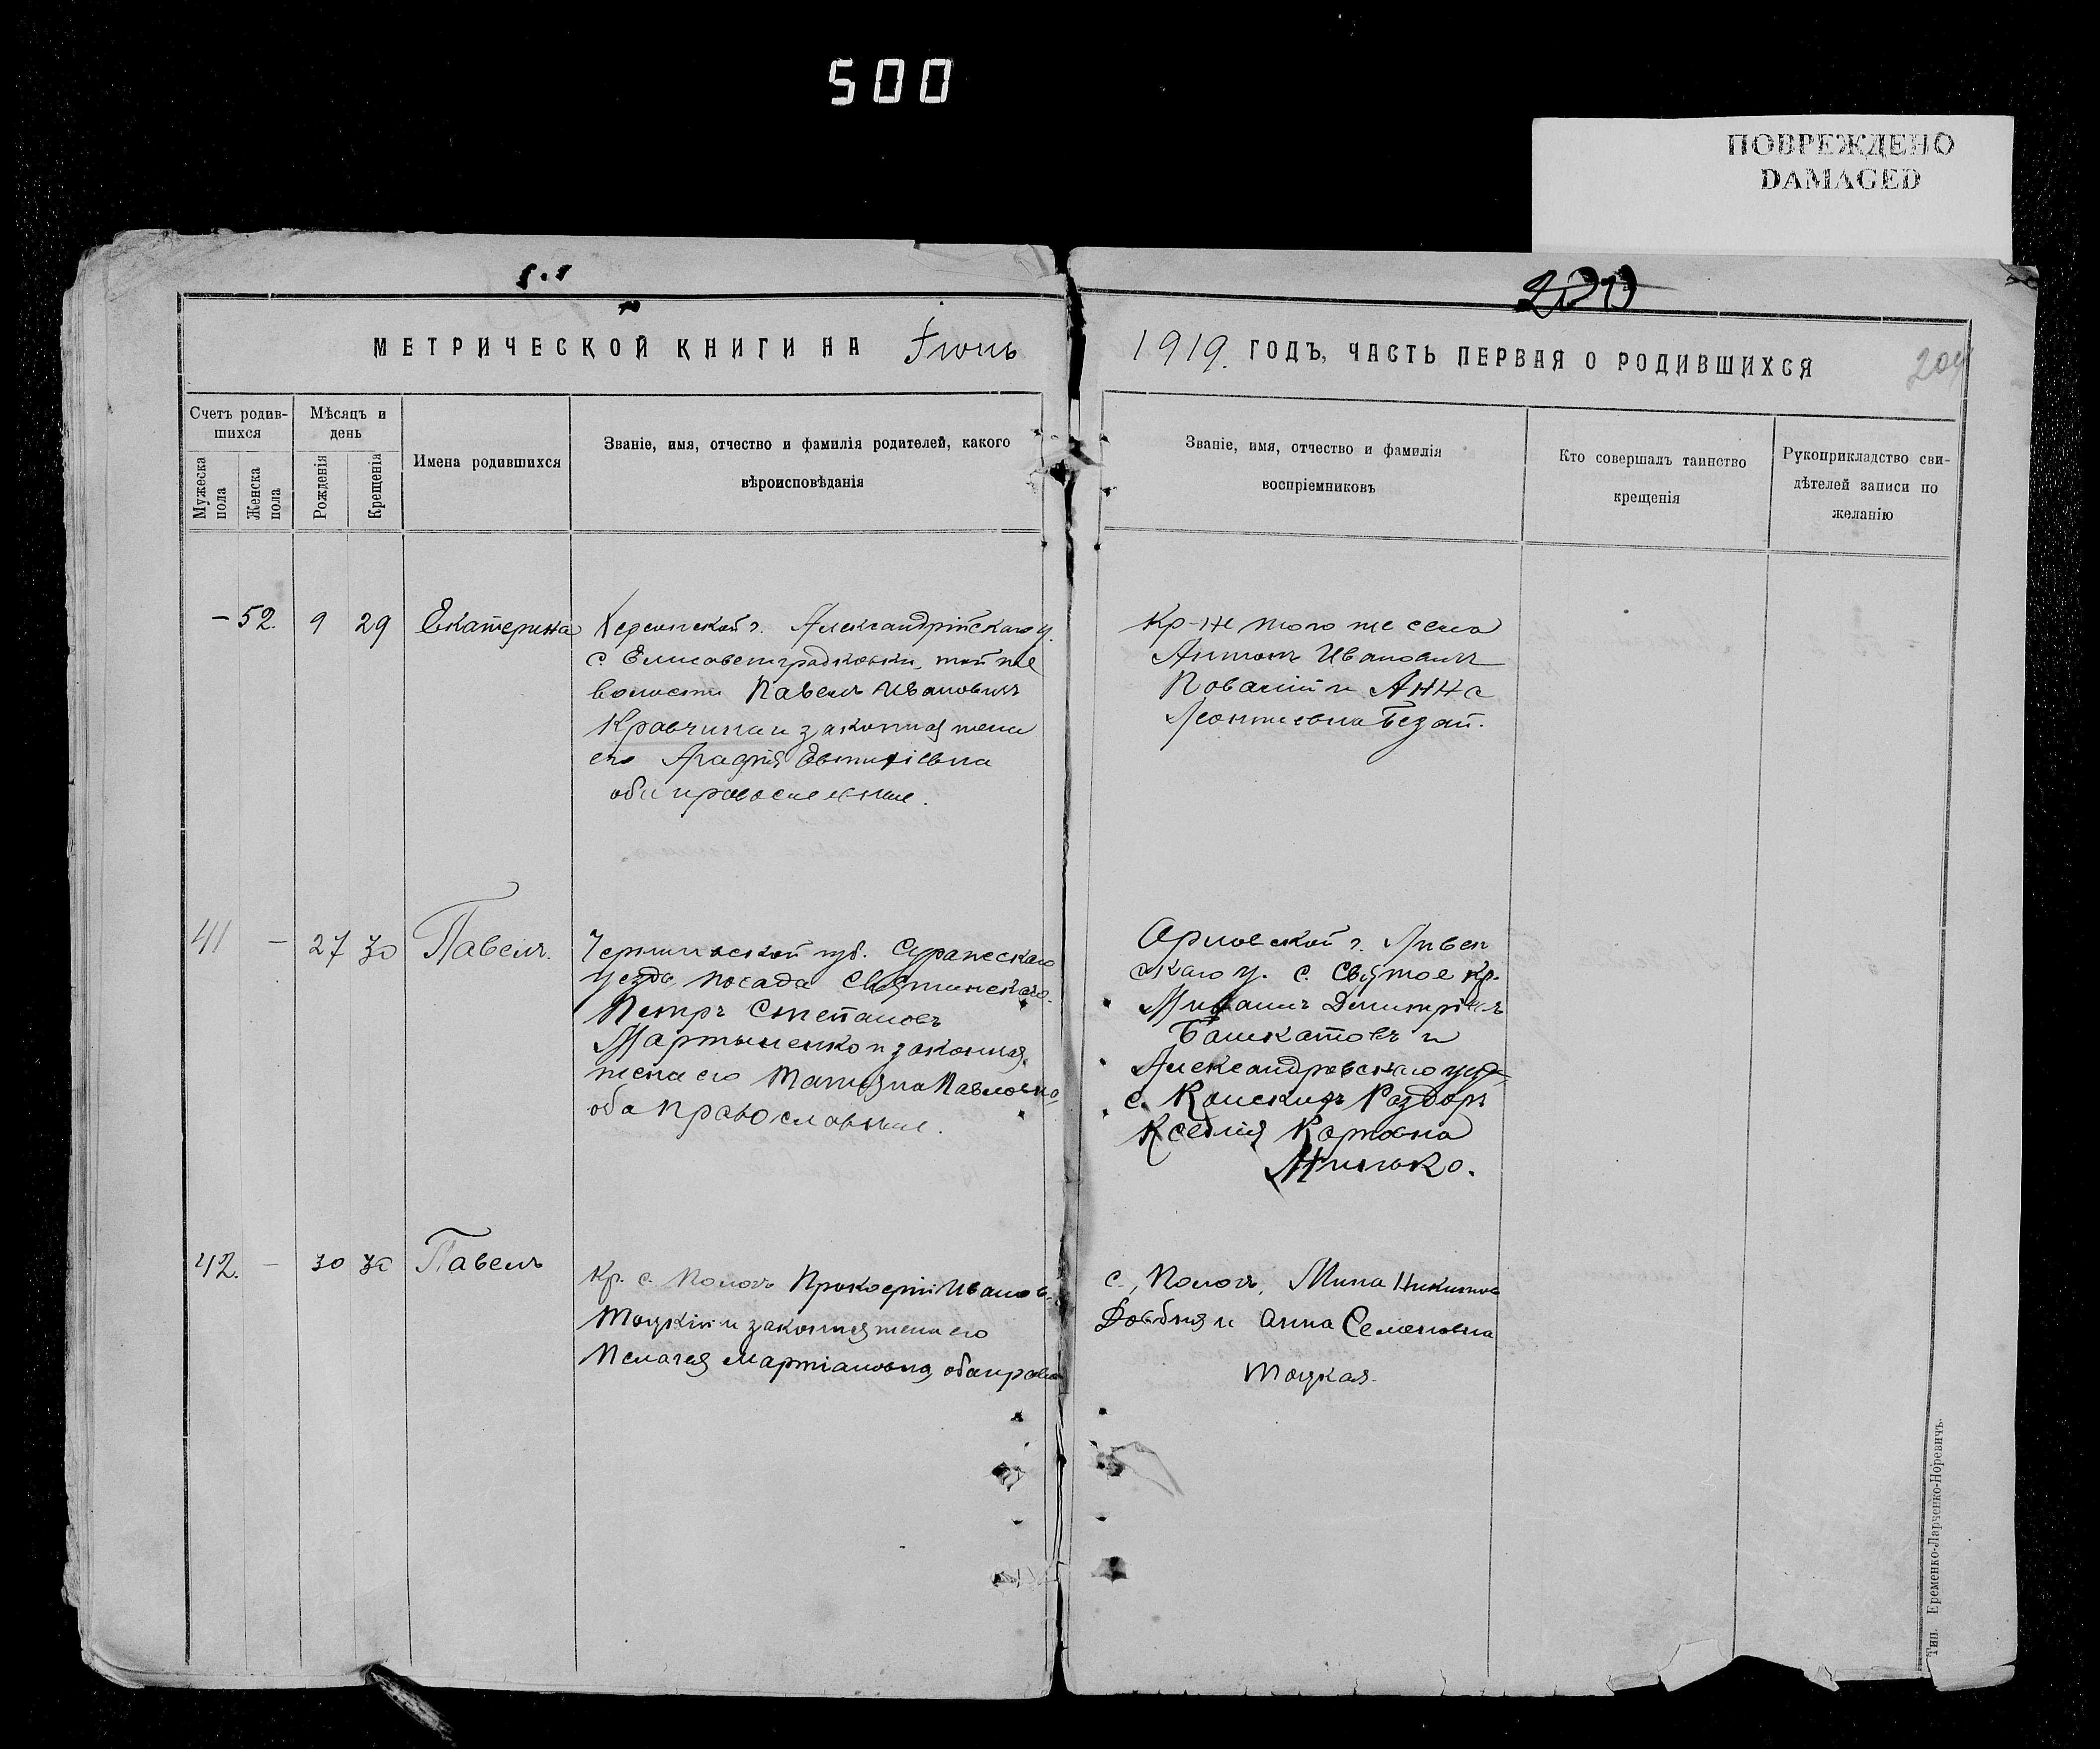 500
ПОВРЕЖДЕНО
DAMAGED
МЕТРИЧЕСКОЙ КНИГИ НА Іюнь
1919. ГОДЪ, ЧАСТЬ ПЕРВАЯ О РОДИВШИХСЯ
204
Счетъ родив-
шихся
Мужеска
пола
Женска
пола
Мѣсяцъ и
день
Рожденія
Крещенія
Имена родившихся
Званіе, имя, отчество и фамилія родителей, какого
вѣроисповѣданія
Званіе, имя, отчество и фамилія
воспріемниковъ
Кто совершалъ таинство
крещенія
Рукоприкладство сви-
дѣтелей записи по
желанію
- 52. 9 29 Екатерина
Херсонской г. Александрійскаго у.
с Елисаветградковки, той же
волости Павелъ Ивановичъ
Кравчина и законная жена
его Агафія Евтихіевна
оба православные.
Кр-не того же села
Антонъ Ивановичъ
и Анна
Леонтиевна Безай.
41 - 27 30 Павелъ.
Черниговской губ. Суражескаго
уезда, посада
Петръ Степановъ
Мартыненко и законная
жена его Татияна Павловна
оба православные.
Орловской г. Ливен
скаго у. с. Святое кр.
Михаилъ Димитріевъ
Башкатовъ и
Александровскаго уез
с. Конскихъ Раздоръ
Ксенія Карповна
42. - 30 30 Павелъ
Кр. с. Пологъ Прокофій Иванов.
Тоцкій и законная жена его
Пелагея Мартіановна, оба правос
с. Пологъ, Мина Никитовъ
Довбня и Анна Семеновна
Тоцкая.
Тип. Еременко-Ларченко-Норевичъ.